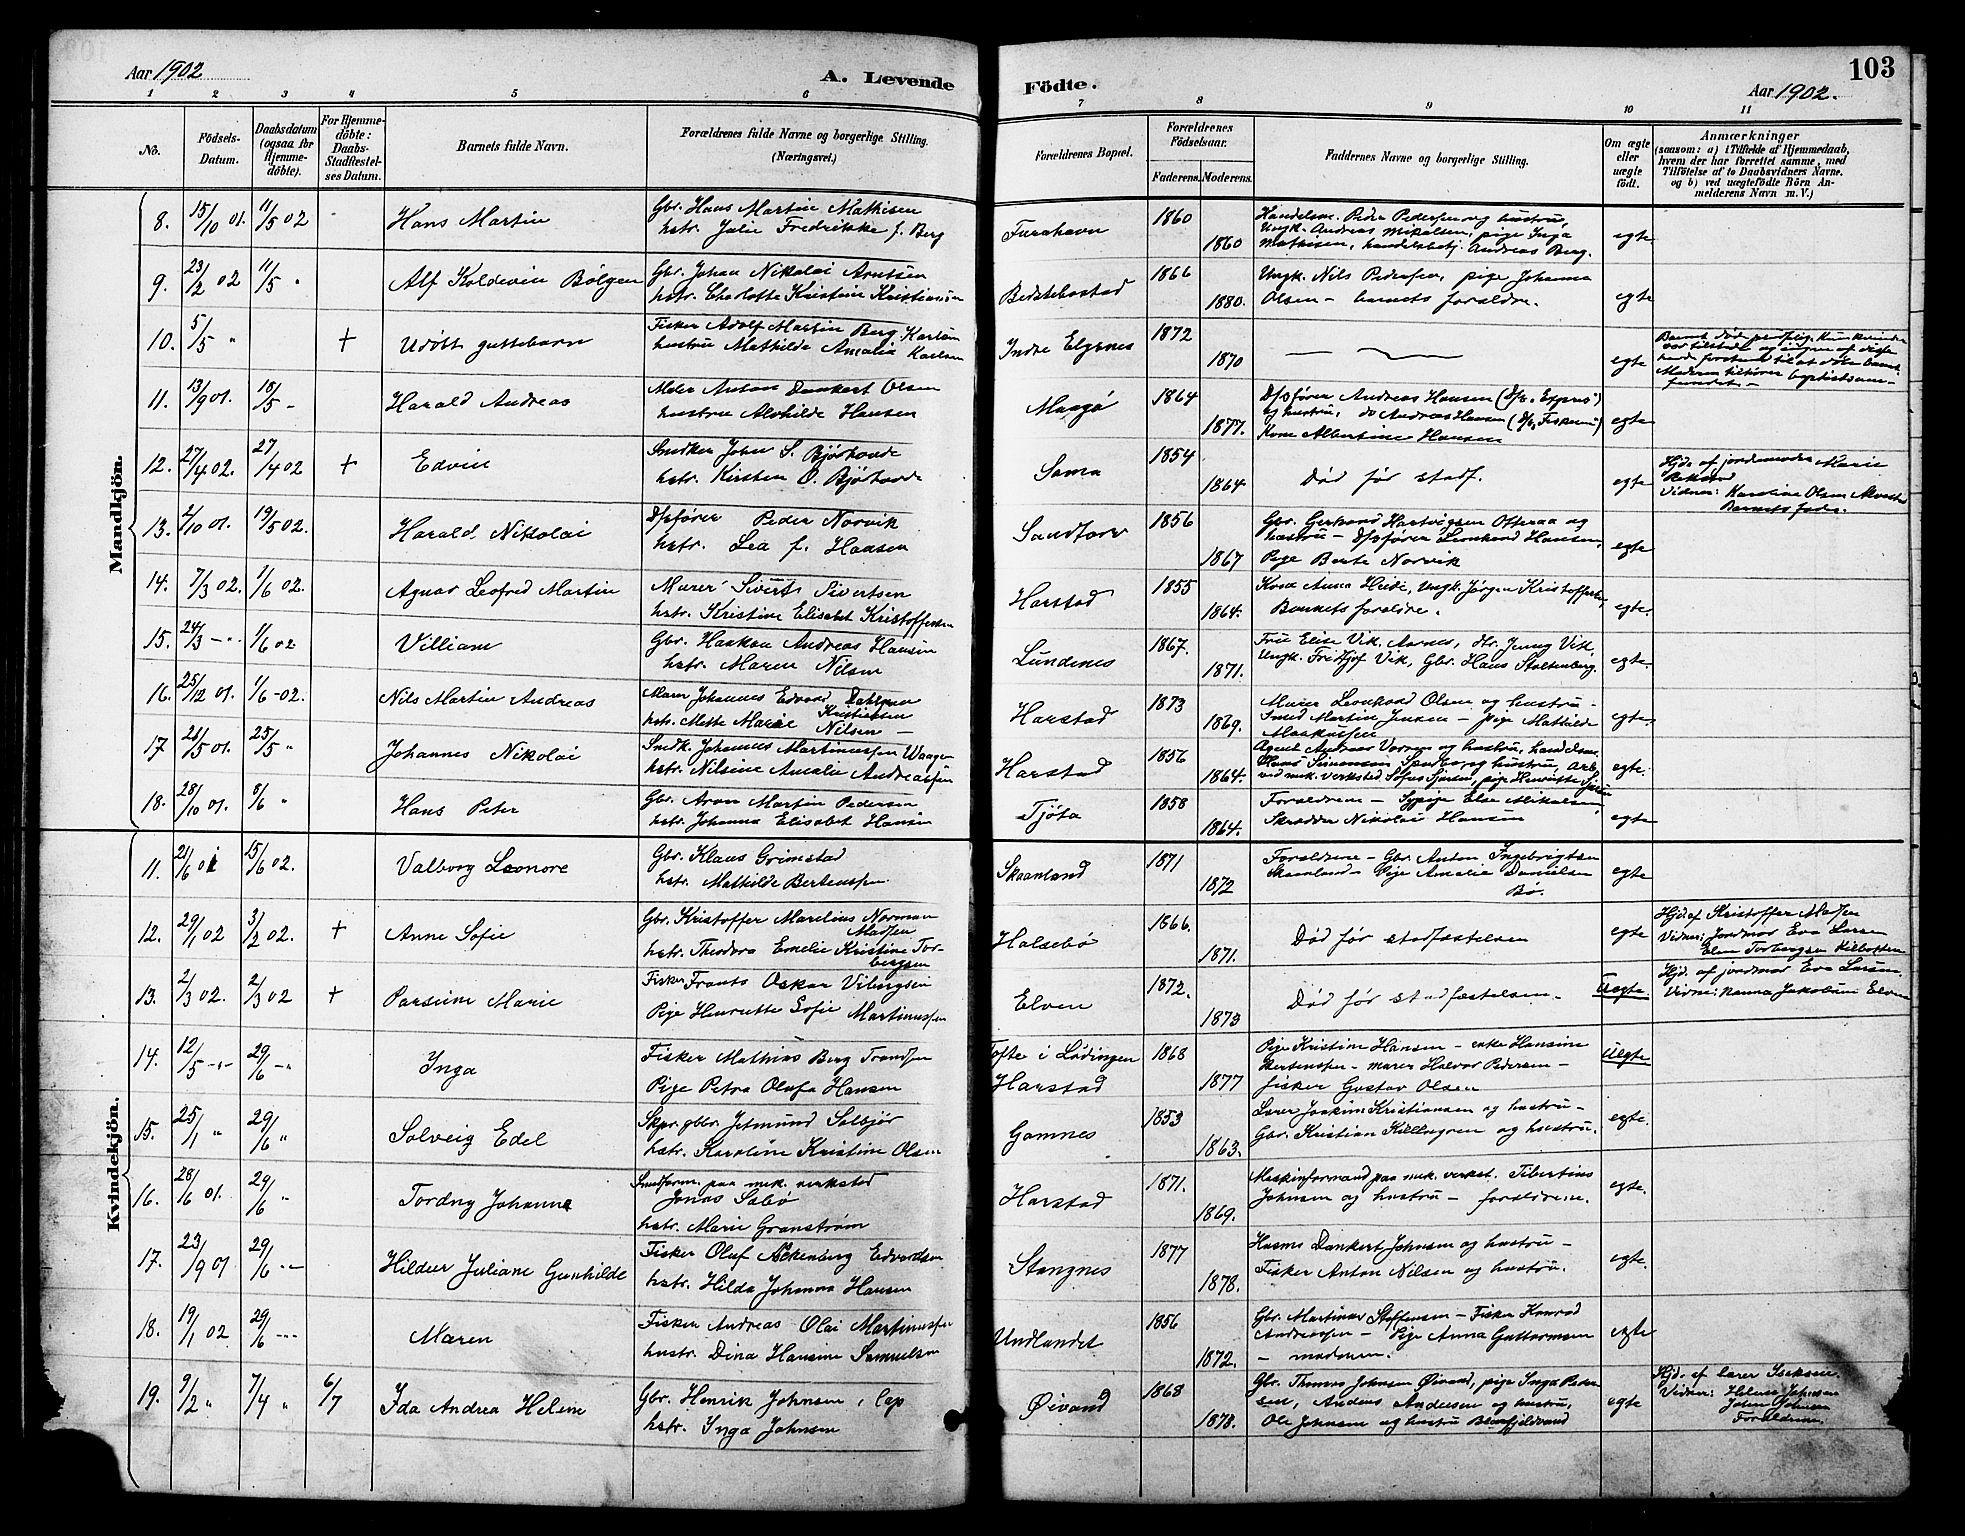 Aar 1902
A. Levende
Födte.
103
Aar 1902.
1 2 3 4 5 6 7 8 9 10 11
No.
Födsels-Datum.
Daabsdatum (ogsaa for Hjemmedöbte).
For Hjemmedöbte: Daabs-Stadfestelses Datum.
Barnets fulde Navn.
Forældrenes fulde Navne og borgerlige Stilling. (Næringsvei.)
Forældrenes Bopæl.
Forældrenes Födselsaar.
Faderens. Moderens.
Faddernes Navne og borgerlige Stilling.
Om ægte eller uægte födt.
Anmærkninger
(saasom: a) i Tilfælde af Hjemmedaab, hvem der har forrettet samme, med Tilföielse af to Daabsvidners Navne. og b) ved uægtefödte Börn Anmelderens Navn m. V.)
Mandkjön.
8. 15/10 01. 11/5 02 Hans Martin Gbr. Hans Martin Mathisen Furahavn 1860 Handelsm. Peder Pedersen og hustru,
hstr. Julie Fredrikke f. Berg 1860 Ungk. Andreas Mikalsen, pige Inga egte
Mathisen, handelsbetj. Andreas Berg.
9. 23/2 02 11/5 " Alf Koldevin Bølgen Gbr. Johan Nikolai Arntsen 1866 Ungk. Nils Pedersen, pige Johanna
hstr. Charlotte Kristine Kristiansen 1880. Olsen – barnets foreldre. egte
10. 5/5 " + Udøbt guttebarn Fisker Adolf Martin Berg Karlsen Indre Elgsnes 1872
hustru Mathilde Amalia Karlsen 1870 egte
11. 13/9 01. 18/5 – Harald Andreas Anton Dankert Olsen Maagø 1864 Dpsfører Andreas Hansen (D/s „Expres")
hustru Alvhilde Hansen 1877. og hustru, do Andreas Hansen egte
Kone Albertine Hansen
12. 27/4 02. 27/4 02 + Edvin Snedker John S. Bjørhovde Sama 1854 Død før stadf. Hjd. af jordemoder Marie
hstr. Kirsten O. Bjørhovde 1864 egte Vidner: Karoline Olsen
Barnets fader.
13. 2/10 01. 19/5 02. Harald Nikolai Dpsfører Peder Norvik Sandtorv 1856 Gbr. Gerhard Hartvigsen Otteraa og
hstr. Lea f. Hansen 1867 hustru – Dpsfører Leonhard Hansen, egte
Pige Berte Norvik
14. 7/3 02. 1/6 02. Agnar Leofred Martin Murer Sivert Sivertsen Harstad 1855 Kona Anna Heide, Ungk. Jørgen Kristoffersen,
hstr. Kristine Elisabet Kristoffersen 1864. Barnets foreldre. egte.
15. 24/3 –"– 1/6 02 Villiam Gbr. Haakon Andreas Hansen Lundenes 1867. Fru Elise Vik, Aarnes, Hr. Jenny Vik,
hstr. Maren Nilsen 1871. Ungk. Fritjof Vik, Gbr. Hans Stoltenberg. egte.
16. 25/12 01. 1/6 –02. Nils Martin Andreas Johannes Edvard Kristiansen Harstad 1873 Murer Leonhard Olsen og hustru –
hstr. Mette Marie Nilsen – 1869. Smed Martin Jensen – pige Mathilde egte.
Maakussen
17 26/5 01. 25/5 " Johannes Nikolai Snedk. Johannes Martinussen Waagen Harstad 1856 Agent Andreas Vorren og hustru, handelsm.
hstr. Nilsine Amalie Andreassen 1864. Hans Simonsen og hustru, Arb. egte.
ved mek. verksted
18. 28/10 01. 8/6 " Hans Peter Gbr. Aron Martin Pedersen Tjøta 1858 Foreldrene – Sypige Else Mikalsen,
hstr. Johanna Elisabet Hansen 1864. Skrædder Nikolai Hansen egte
Kvindekjön.
11. 21/6 01 15/6 02. Valborg Leonore Gbr. Klaus Grimstad Skaanland 1871 Foreldrene – Gbr. Anton Ingebrigtsen
hstr. Mathilde Bertenssen. 1872 Skaanland – Pige Amalie Danielsen egte
Bø.
12. 29/1 02 3/2 02. + Anne Sofie Gbr. Kristoffer Marelius Norman Madsen Halsebø 1866. Død før stadfæstelsen egte Hjd. af Kristoffer Madsen
hstr. Theodora Emelie Kristine Torbergsen 1871. Vidner: Jordmor Eva Larsen
Elen Torbergsen Kilbotten
13. 2/3 02. 2/3 02 + Parsium Marie Fisker Frants Oskar Vibergsen Elven 1872. Død før stadfæstelsen. Uegte Hjd. af jordmor Eva Larsen.
Pige Henriette Sofie Martinussen 1873 Vidne: Nanna Jakobsen Elven
14. 12/5 –"– 29/6 –" Inga Fisker Mathias Berg Trondsen Tofte i Lødingen 1868 Pige Kristine Hansen – enke Hansine Uegte
Pige Petra Olufa Hansen Harstad 1877 Bertenssen – murer Halvor Pedersen –
fisker Gustav Olsen
15. 25/1 " 29/6 " Solveig Edel Skpr. gbr. Jetmund Solbjør Gamnes 1853 Lærer Joakim Kristiansen og hustru –
hstr. Karoline Kristine Olsen 1863. Gbr. Kristian Killengren og hustru. egte.
16. 28/6 01. 29/6 " Tordny Johanne Smedform. paa mek. verksted Harstad 1871. Maskinformand paa mek. verkst. Tibertius
Jonas Sæbø
hstr. Marie Granstrøm 1869. Johnsen og hustru – foreldrene. egte.
17. 23/9 01 29/6 –– Hildur Juliane Gunhilde Fisker Oluf Edvardsen Stangnes 1877 Dankert Johnsen og hustru –
hstr. Hilda Johanna Hansen 1878. Fisker Anton Nilsen og hustru. egte.
18. 19/1 02 29/6 –– Maren Fisker Andreas Olai Martinussen Undlandet 1856 Gbr. Martinus Steffensen – Fisker Konrad
hustr. Dina Hansine Samuelsen 1872. Andreassen – Pige Anna Guttormsen egte
– moderen.
19. 9/2 " 7/4 " 6/7 Ida Andrea Helene Gbr. Henrik Johnsen, Øivand 1868 Gbr. Thomas Johnsen Øivand, pige Inga Peder Hjd. af lærer Iseksen.
hstr. Inga Johnsen 1878. sen, Anders Andersen og hustru, egte Vidner: Helmer Johnsen
Ole Johnsen og hustru Johan Johnsen
Foreldrene